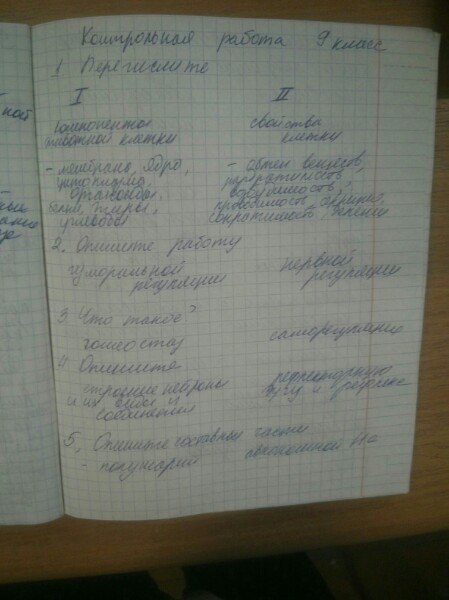 Контрольная работа 9 класс
1. Перечислите
I II
компоненты животной клетки
свойства клетки
- мембрана, ядро,
цитоплазма,
органоиды,
белки, жиры,
углеводы
- обмен веществ,
раздражимость,
возбудимость,
проводимость,
сократимость, деление
2. Опишите работу
гуморальной регуляции
нервной регуляции
3. Что такое?
гомеостаз
саморегуляция
4. Опишите
строение нейрона
и их виды и
соединения
рефлекторную
дугу и рефлекс
5. Опишите составные части
- полушарий
автономной Нс